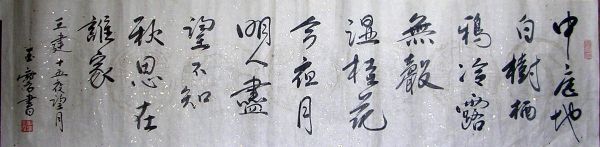 中庭地
白樹栖
鴉冷露
無聲
湿桂花
今夜月
明人盡
望不知
秋思在
誰家
王建十五夜望月
玉書